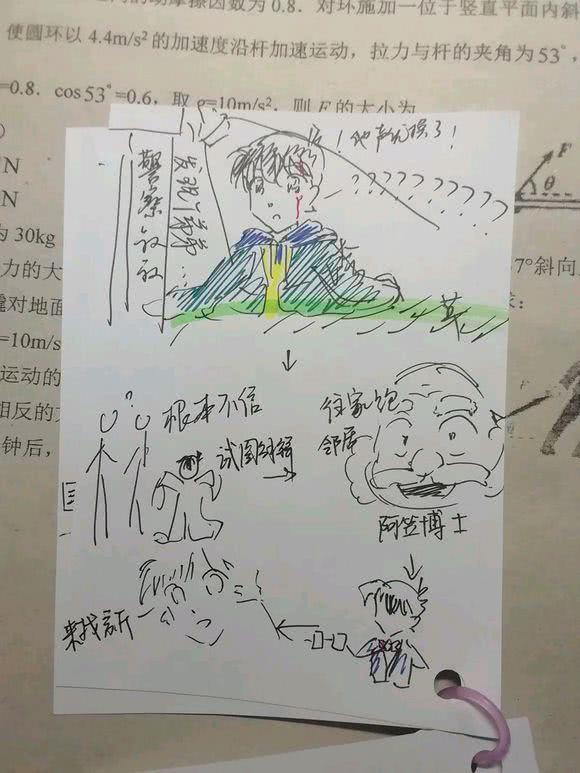 的动摩擦因数为0.8．对环施加一位于竖直平面内斜
使圆环以4.4m/s²的加速度沿杆加速运动，拉力与杆的夹角为53°，
=0.8．cos53°=0.6，取g=10m/s²，则F的大小为
N
N
为30kg
力的大
7°斜向
对地面
=10m/s
运动的
相反的
钟后，
F
θ
！他声音变了！
？？？？？？？？
警察叔叔
发现1弟弟…
草
↓
？
根本不信
试图
→
往家跑
邻居
阿笠博士
↓
来找新一
←